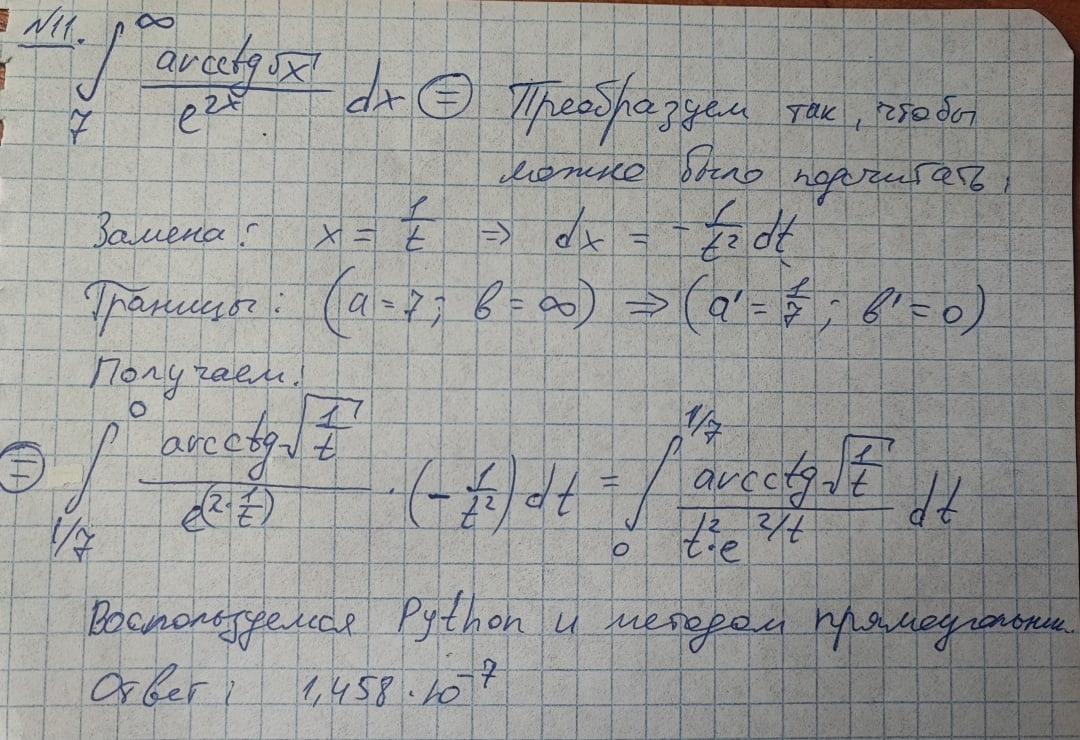 №11. ∫_7^∞ arcctg√x / e^{2x} dx ⊜ Преобразуем так, чтобы
можно было подсчитать:
Замена: x = 1/t ⇒ dx = -1/t² dt
Границы: (a = 7; b = ∞) ⇒ (a' = 1/7; b' = 0)
Получаем:
⊜ ∫_{1/7}^0 arcctg√(1/t) / e^{(2·1/t)} · (-1/t²) dt = ∫_0^{1/7} arcctg√(1/t) / t²·e^{2/t} dt
Воспользуемся Python и методом прямоугольник.
Ответ: 1,458·10^{-7}